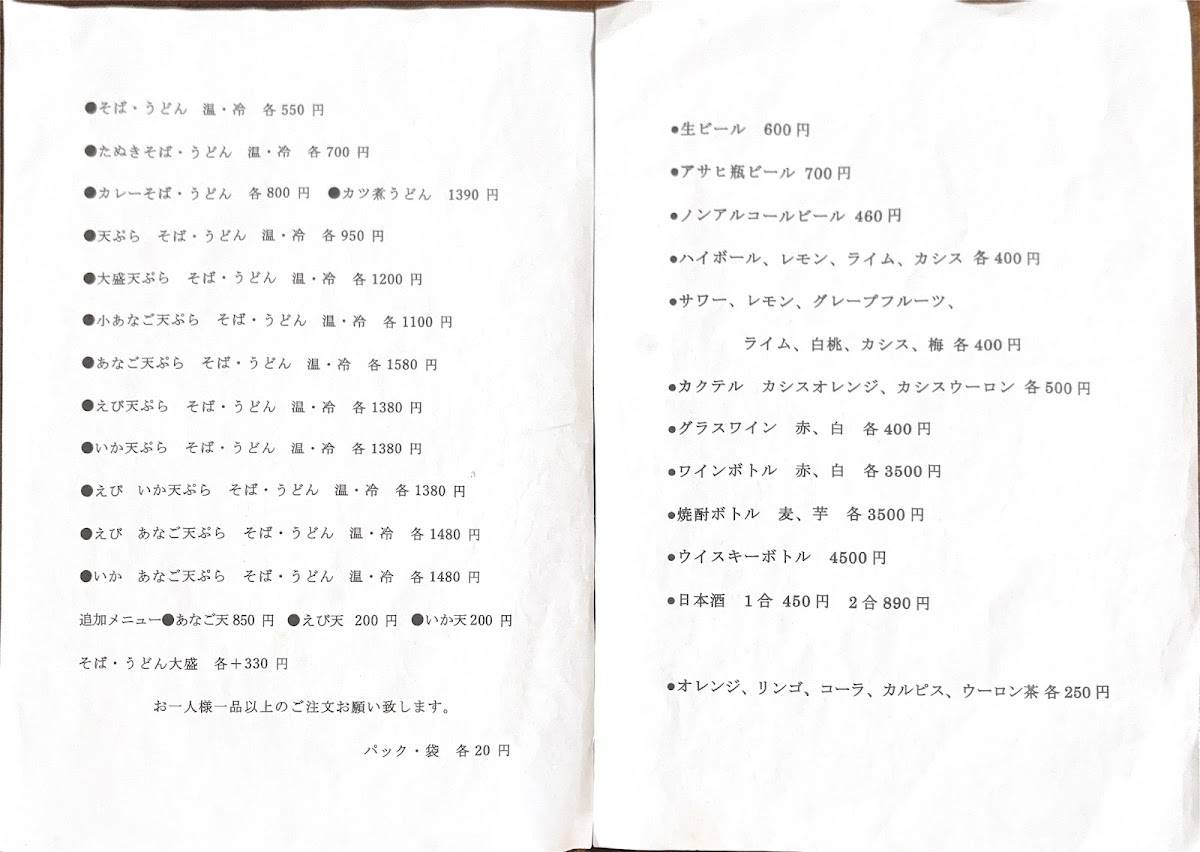 ●そば・うどん　温・冷　各550 円
●たぬきそば・うどん　温・冷　各700 円
●カレーそば・うどん　各800 円　●カツ煮うどん　1390 円
●天ぷら　そば・うどん　温・冷　各950 円
●大盛天ぷら　そば・うどん　温・冷　各1200 円
●小あなご天ぷら　そば・うどん　温・冷　各1100 円
●あなご天ぷら　そば・うどん　温・冷　各1580 円
●えび天ぷら　そば・うどん　温・冷　各1380 円
●いか天ぷら　そば・うどん　温・冷　各1380 円
●えび　いか天ぷら　そば・うどん　温・冷　各1380 円
●えび　あなご天ぷら　そば・うどん　温・冷　各1480 円
●いか　あなご天ぷら　そば・うどん　温・冷　各1480 円
追加メニュー●あなご天850 円　●えび天　200 円　●いか天200 円
そば・うどん大盛　各＋330 円
お一人様一品以上のご注文お願い致します。
パック・袋　各20 円
●生ビール　600円
●アサヒ瓶ビール 700円
●ノンアルコールビール 460円
●ハイボール、レモン、ライム、カシス 各400円
●サワー、レモン、グレープフルーツ、
ライム、白桃、カシス、梅 各400円
●カクテル　カシスオレンジ、カシスウーロン 各500円
●グラスワイン　赤、白　各400円
●ワインボトル　赤、白　各3500円
●焼酎ボトル　麦、芋　各3500円
●ウイスキーボトル　4500円
●日本酒　1合 450円　2合890円
●オレンジ、リンゴ、コーラ、カルピス、ウーロン茶 各250円